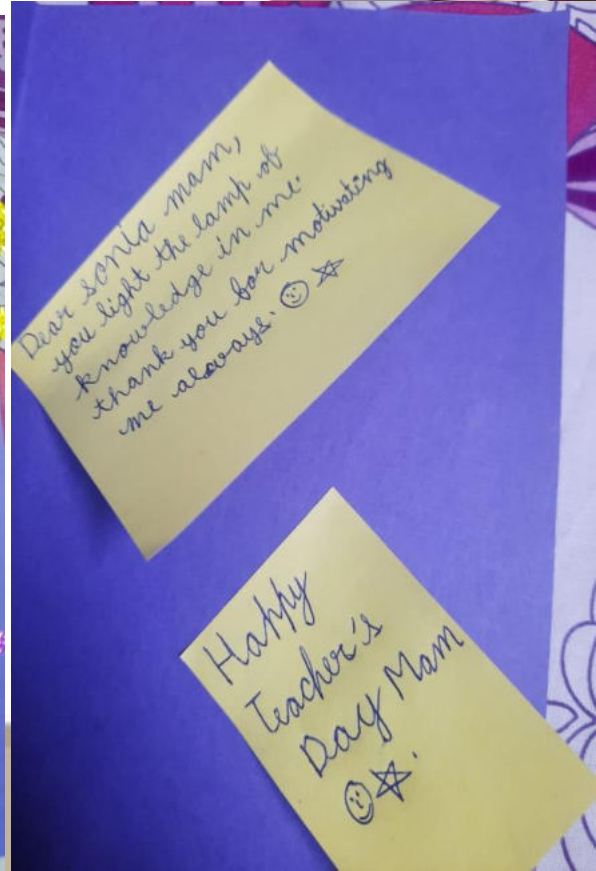 Dear sonia mam,
you light the lamp of
knowledge in me.
thank you for motivating
me always. ☺ ☆
Happy
Teacher's
Day Mam
☺☆.